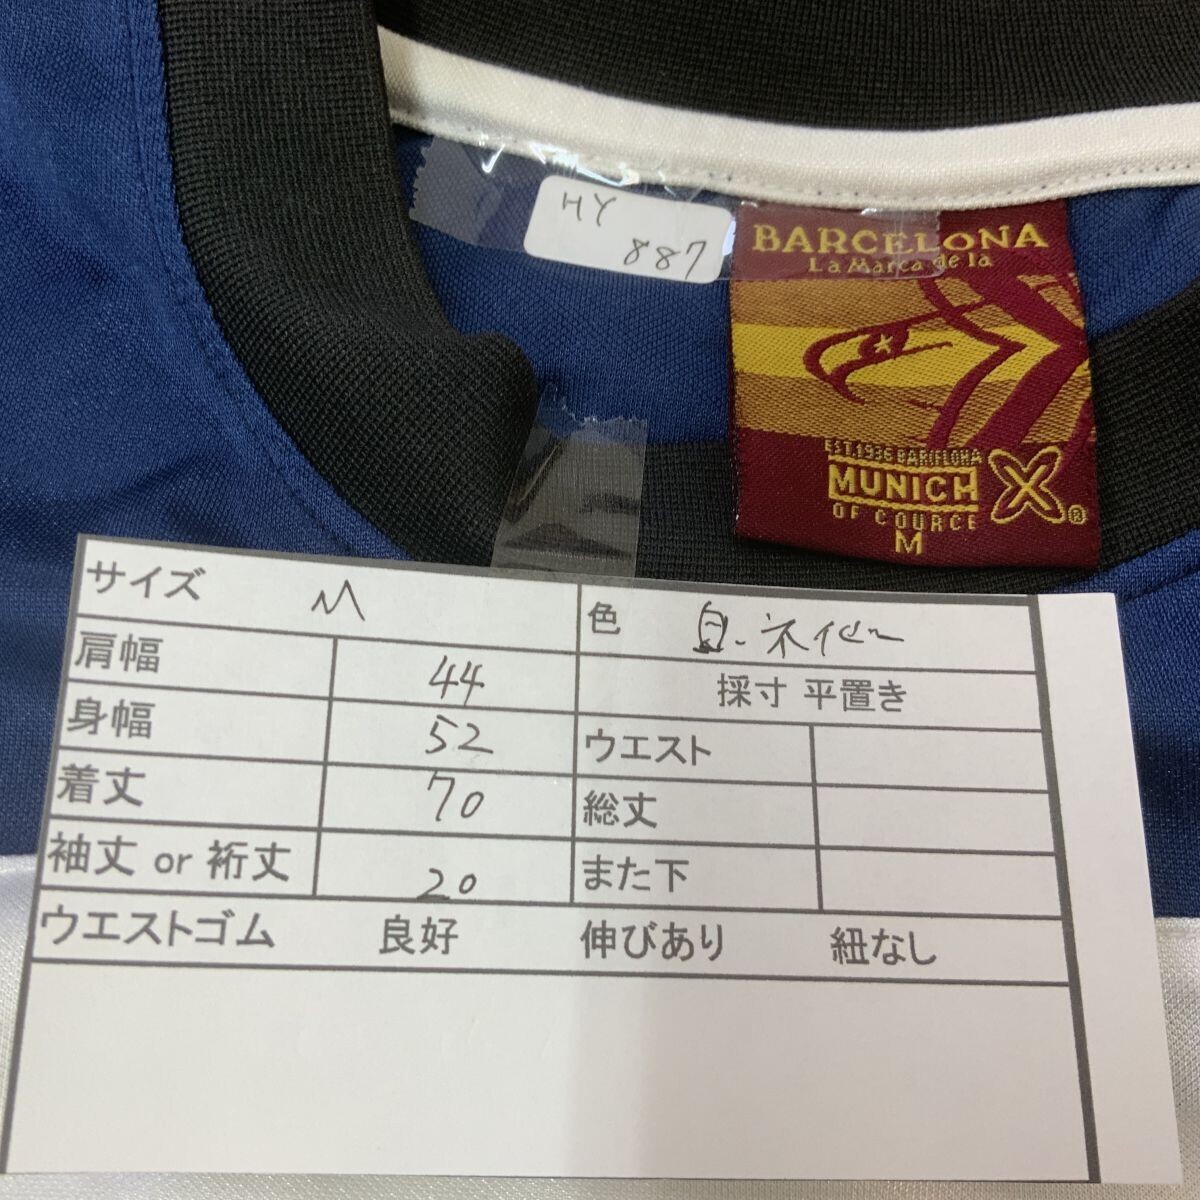 HY
887
BARCELONA
La Marca de la
EST.1936 BARCELONA
MUNICH X®
OF COURCE
M
サイズ M 色 白・ネイビー
肩幅 44 採寸 平置き
身幅 52 ウエスト
着丈 70 総丈
袖丈 or 裄丈 20 また下
ウエストゴム 良好 伸びあり 紐なし